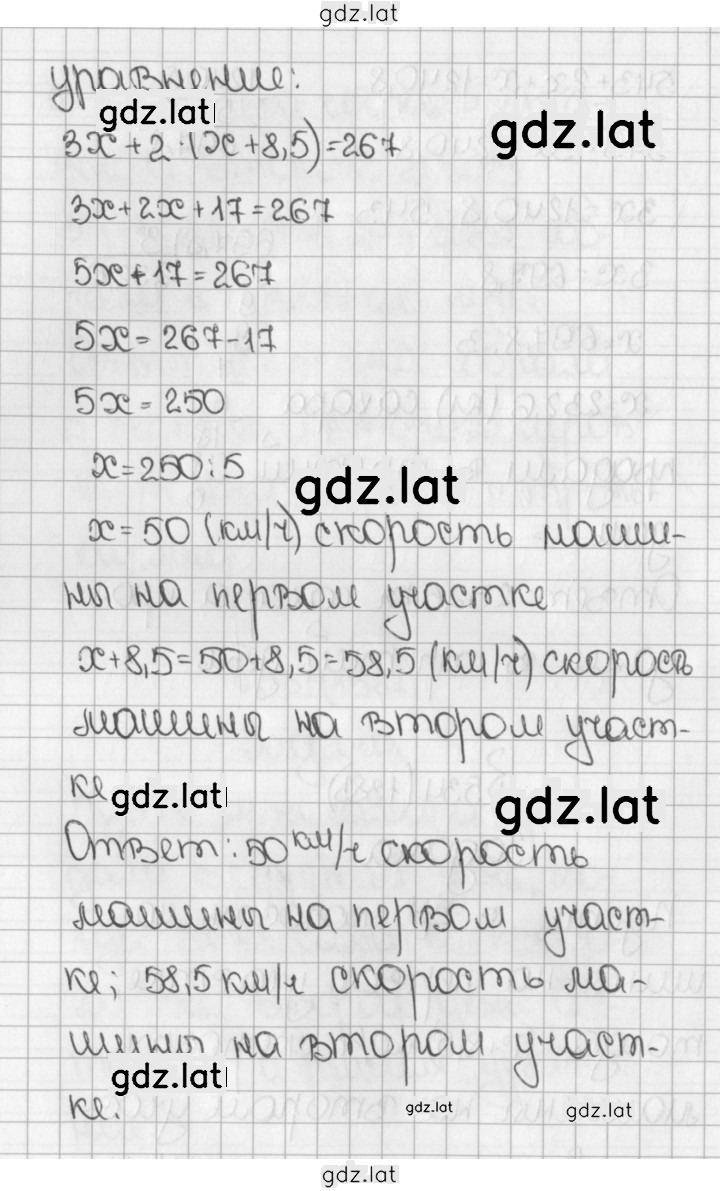 gdz.lat
уравнение:
gdz.lat
3x + 2 · (x + 8,5) = 267
gdz.lat
3x + 2x + 17 = 267
5x + 17 = 267
5x = 267 - 17
5x = 250
x = 250 : 5
gdz.lat
x = 50 (км/ч) скорость маши-
ны на первом участке
x + 8,5 = 50 + 8,5 = 58,5 (км/ч) скорость
машины на втором участ-
ке
gdz.lat
gdz.lat
Ответ: 50 км/ч скорость
машины на первом участ-
ке; 58,5 км/ч скорость ма-
шины на втором участ-
gdz.lat
ке.
gdz.lat
gdz.lat
gdz.lat